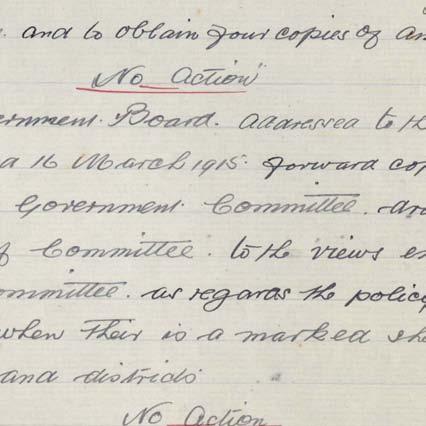 . and to obtain four copies of an
"No Action"
ernment. Board. addressed to th
a 16 March 1915. forward cop
Government. Committee. and
f Committee. to the views e
ommittee. as regards the policy
when their is a marked sho
and districts
No Action